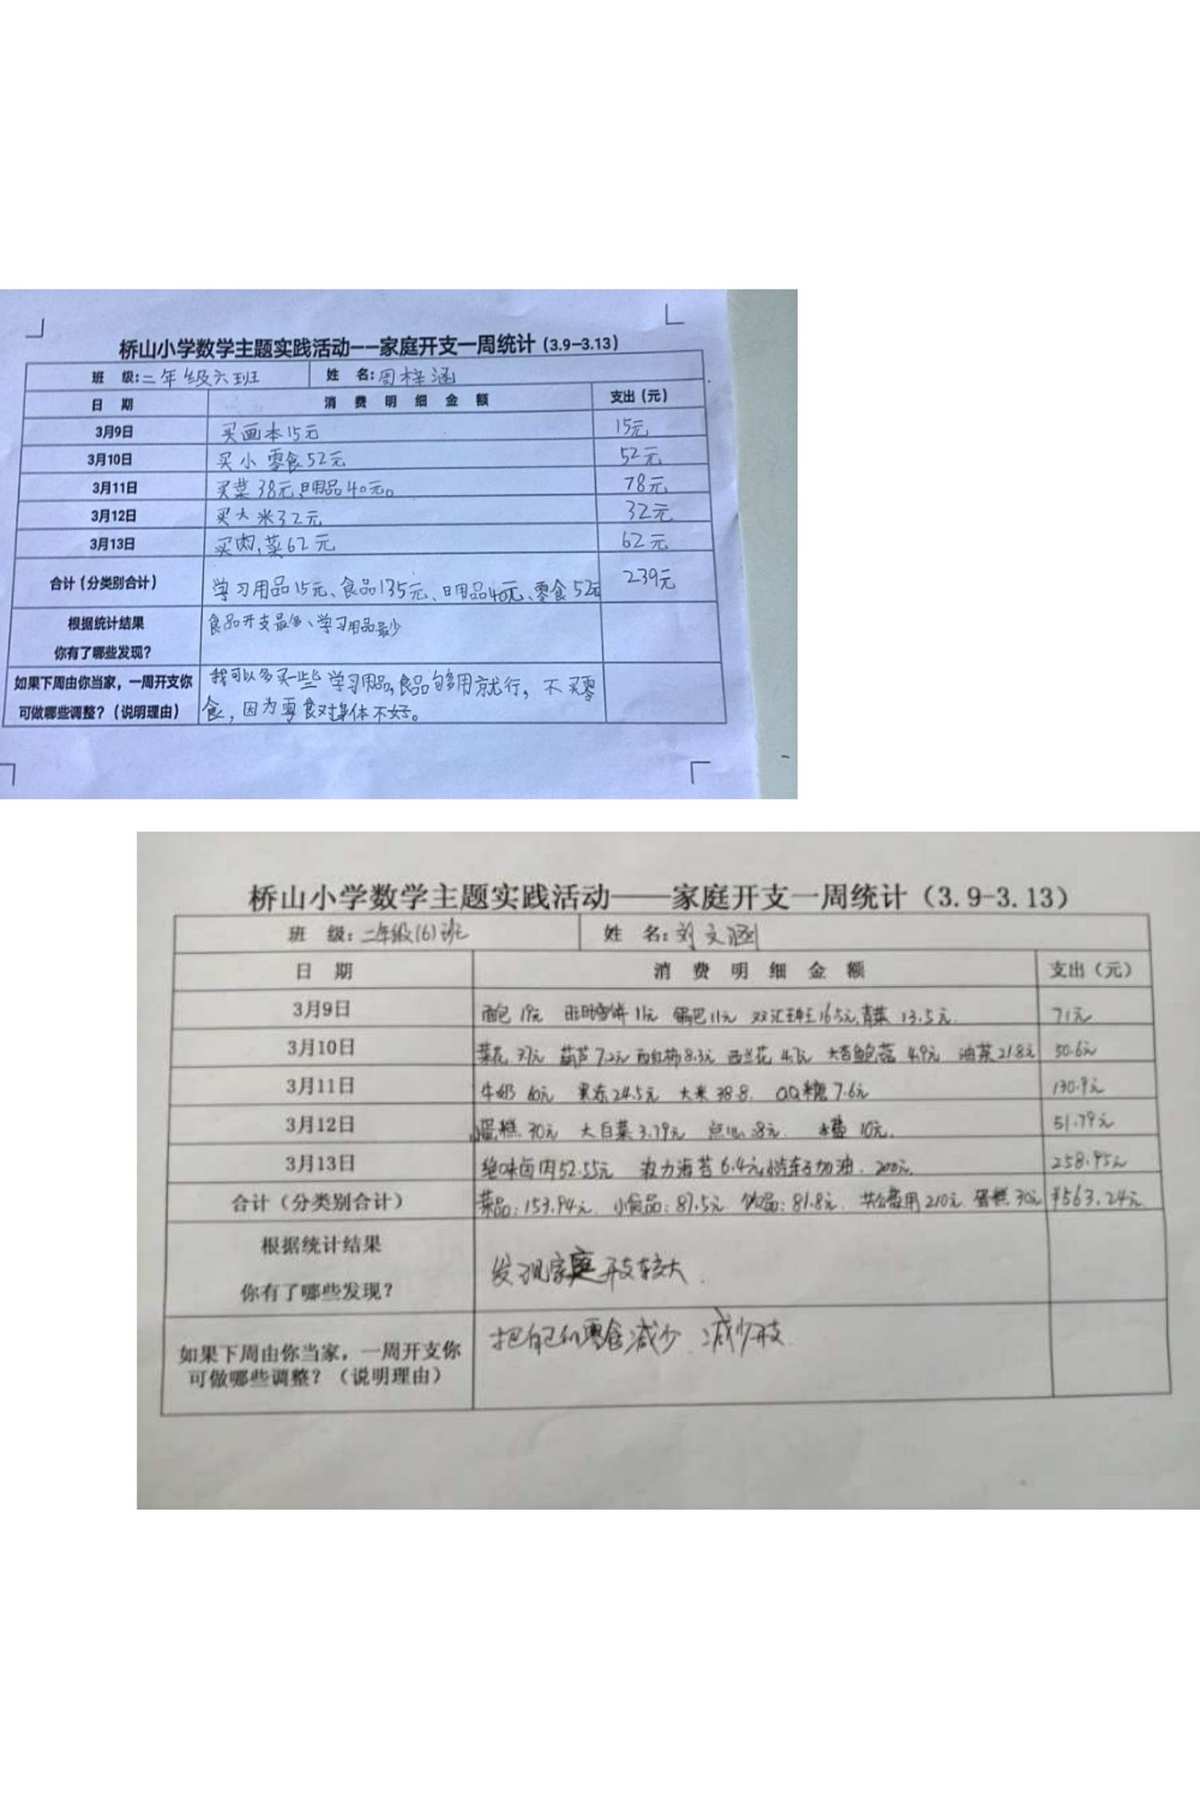 桥山小学数学主题实践活动——家庭开支一周统计(3.9-3.13)
班 级:二年级六班 姓 名:周梓涵
日 期 消 费 明 细 金 额 支出(元)
3月9日 买画本15元 15元
3月10日 买小零食52元 52元
3月11日 买菜38元,日用品40元。 78元
3月12日 买大米32元 32元
3月13日 买肉,菜62元 62元
合计(分类别合计) 学习用品15元、食品135元、日用品40元、零食52元 239元
根据统计结果 食品开支最多、学习用品最少
你有了哪些发现?
如果下周由你当家,一周开支你 我可以多买一些学习用品,食品够用就行,不买零
可做哪些调整?(说明理由) 食,因为零食对身体不好。
桥山小学数学主题实践活动——家庭开支一周统计(3.9-3.13)
班 级:二年级(6)班 姓 名:刘文涵
日 期 消 费 明 细 金 额 支出(元)
3月9日 面包 19元 旺旺雪饼 11元 锅巴11元 双汇王中王16.5元,青菜 13.5元. 71元
3月10日 菜花 3.7元 葫芦7.2元 西红柿8.3元 西兰花 4.7元 4.9元 油菜21.8元 50.6元
3月11日 牛奶 60元 果冻24.5元 大米 38.8. QQ糖7.6元 130.9元
3月12日 蛋糕 30元 大白菜 3.79元 点心 8元. 10元. 51.79元
3月13日 绝味卤肉52.55元 波力海苔 6.4元 车子加油. 200元. 258.95元
合计(分类别合计) 菜品:153.94元. 小食品:87.5元 饮品:81.8元. 公费用210元. 蛋糕30元 ¥563.24元
根据统计结果
你有了哪些发现? 发现家庭开支较大.
如果下周由你当家,一周开支你 把自己的零食减少.减少开支.
可做哪些调整?(说明理由)